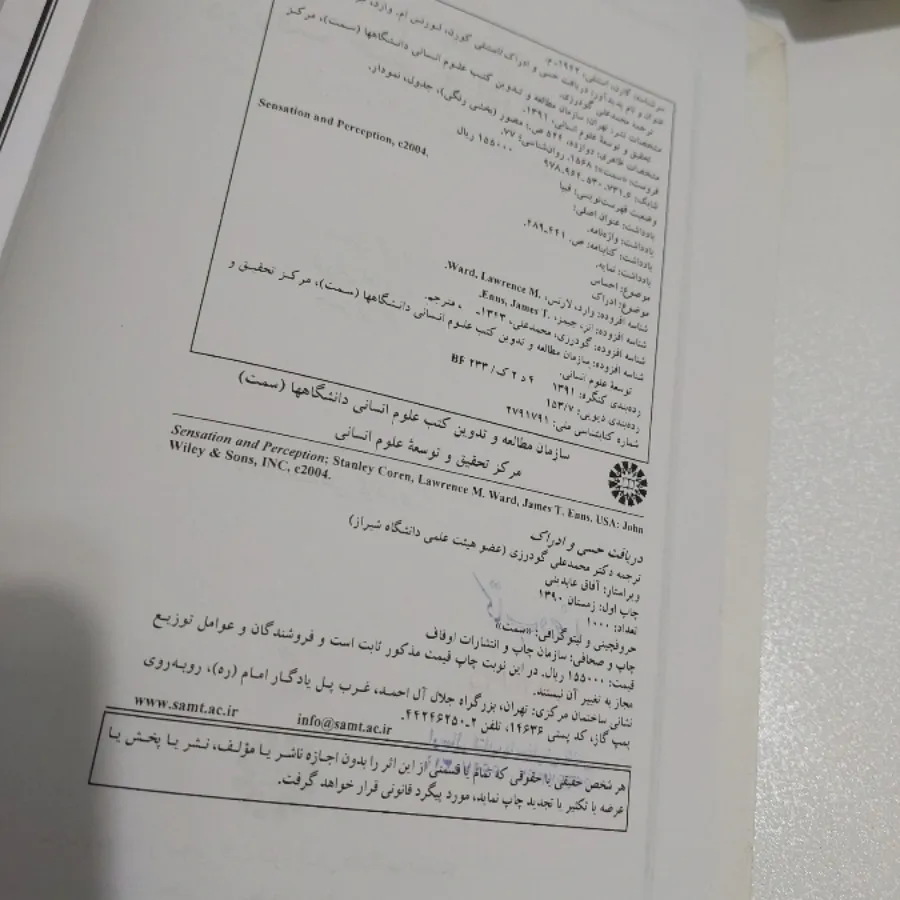 سرشناسه: کورن، استنلی، ۱۹۴۲ـ م.
عنوان و نام پدیدآور: دریافت حسی و ادراک/ استنلی کورن، لورنس ام. وارد،
ترجمه محمدعلی گودرزی.
مشخصات نشر: تهران: سازمان مطالعه و تدوین کتب علوم انسانی دانشگاهها (سمت)، مرکز
تحقیق و توسعهٔ علوم انسانی، ۱۳۹۱.
مشخصات ظاهری: دوازده، ۵۴۴ ص.: مصور (بخشی رنگی)، جدول، نمودار.
فروست: «سمت»؛ ۱۵۶۸. روان‌شناسی؛ ۷۷.
شابک: ۹۷۸ـ۹۶۴ـ۵۳۰ـ۷۳۱ـ۶ ۱۵۵۰۰۰ ریال
وضعیت فهرست‌نویسی: فیپا
یادداشت: عنوان اصلی: Sensation and Perception, c2004.
یادداشت: واژه‌نامه.
یادداشت: کتابنامه: ص. ۴۴۱ـ۴۸۹.
یادداشت: نمایه.
موضوع: احساس
موضوع: ادراک
شناسه افزوده: وارد، لارنس، Ward, Lawrence M.
شناسه افزوده: انز، جیمز، Enns, James T.
شناسه افزوده: گودرزی، محمدعلی، ۱۳۴۳ـ ، مترجم.
شناسه افزوده: سازمان مطالعه و تدوین کتب علوم انسانی دانشگاهها (سمت)، مرکز تحقیق و
توسعهٔ علوم انسانی.
رده‌بندی کنگره: ۱۳۹۱ ۴ د ۲ ک/ BF ۲۳۳
رده‌بندی دیویی: ۱۵۳/۷
شماره کتابشناسی ملی: ۲۷۹۱۷۹۱
سازمان مطالعه و تدوین کتب علوم انسانی دانشگاهها (سمت)
مرکز تحقیق و توسعهٔ علوم انسانی
Sensation and Perception; Stanley Coren, Lawrence M. Ward, James T. Enns, USA: John
Wiley & Sons, INC, c2004.
دریافت حسی و ادراک
ترجمه دکتر محمدعلی گودرزی (عضو هیئت علمی دانشگاه شیراز)
ویراستار: آفاق عابدینی
چاپ اول: زمستان ۱۳۹۰
تعداد: ۱۰۰۰
حروفچینی و لیتوگرافی: «سمت»
چاپ و صحافی: سازمان چاپ و انتشارات اوقاف
قیمت: ۱۵۵۰۰۰ ریال. در این نوبت چاپ قیمت مذکور ثابت است و فروشندگان و عوامل توزیع
مجاز به تغییر آن نیستند.
نشانی ساختمان مرکزی: تهران، بزرگراه جلال آل احمد، غرب پل یادگار امام (ره)، روبه‌روی
پمپ گاز، کد پستی ۱۴۶۳۶، تلفن ۲ـ۴۴۲۴۶۲۵۰.
www.samt.ac.ir info@samt.ac.ir
هر شخص حقیقی یا حقوقی که تمام یا قسمتی از این اثر را بدون اجازه ناشر یا مؤلف، نشر یا پخش یا
عرضه یا تکثیر یا تجدید چاپ نماید، مورد پیگرد قانونی قرار خواهد گرفت.